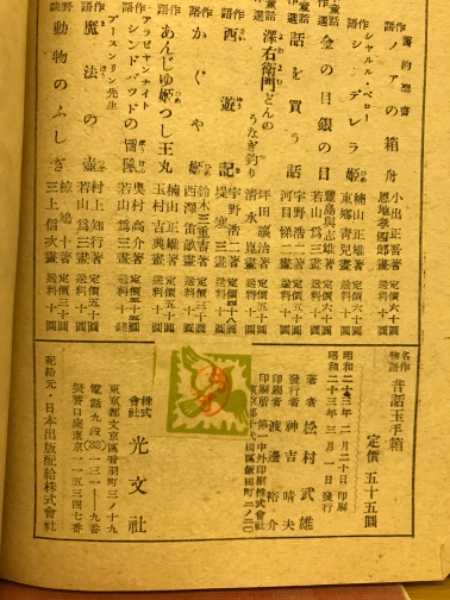 舊約聖書
ノアの箱舟 小出正吾著 定價六十圓
恩地孝四郎畫 送料十圓
シャルル・ペロー
シンデレラ姫 楠山正雄著 定價六十圓
東郷青兒畫 送料十圓
金の目銀の目 豐島與志雄著 定價六十圓
若山爲三畫 送料十圓
話を買う話 宇野浩二著 定價五十圓
河目悌二畫 送料十圓
澤右衞門どんのうなぎ釣り 坪田讓治著 定價五十圓
清水崑畫 送料十圓
西遊記 宇野浩二著
堤寒三畫 送料十圓
かぐや姫 鈴木三重吉著
西澤笛畝畫 送料十圓
あんじゅ姫つし王丸 楠山正雄著 定價五十圓
玉村吉典畫 送料十圓
アラビヤンナイト
シンドバッドの冒險 奥村高介著
若山爲三畫 送料十圓
プースンリン先生
魔法の壺 村上知行著 定價五十圓
若山爲三畫 送料十圓
動物のふしぎ 椋鳩十著 定價三十圓
三上信次畫 送料十圓
名作物語
昔話玉手箱
定價 五十五圓
昭和二十三年二月二十日印刷
昭和二十三年三月一日發行
著者 松村武雄
發行者 神吉晴夫
印刷者 渡邊裕介
印刷所 第一中外印刷株式會社
東京都千代田區飯田町二ノ二〇
株式會社 光文社
東京都文京區音羽町三ノ十九
電話九段(33)一三一——九番
振替口座東京一一五三四七番
配給元・日本出版配給株式會社